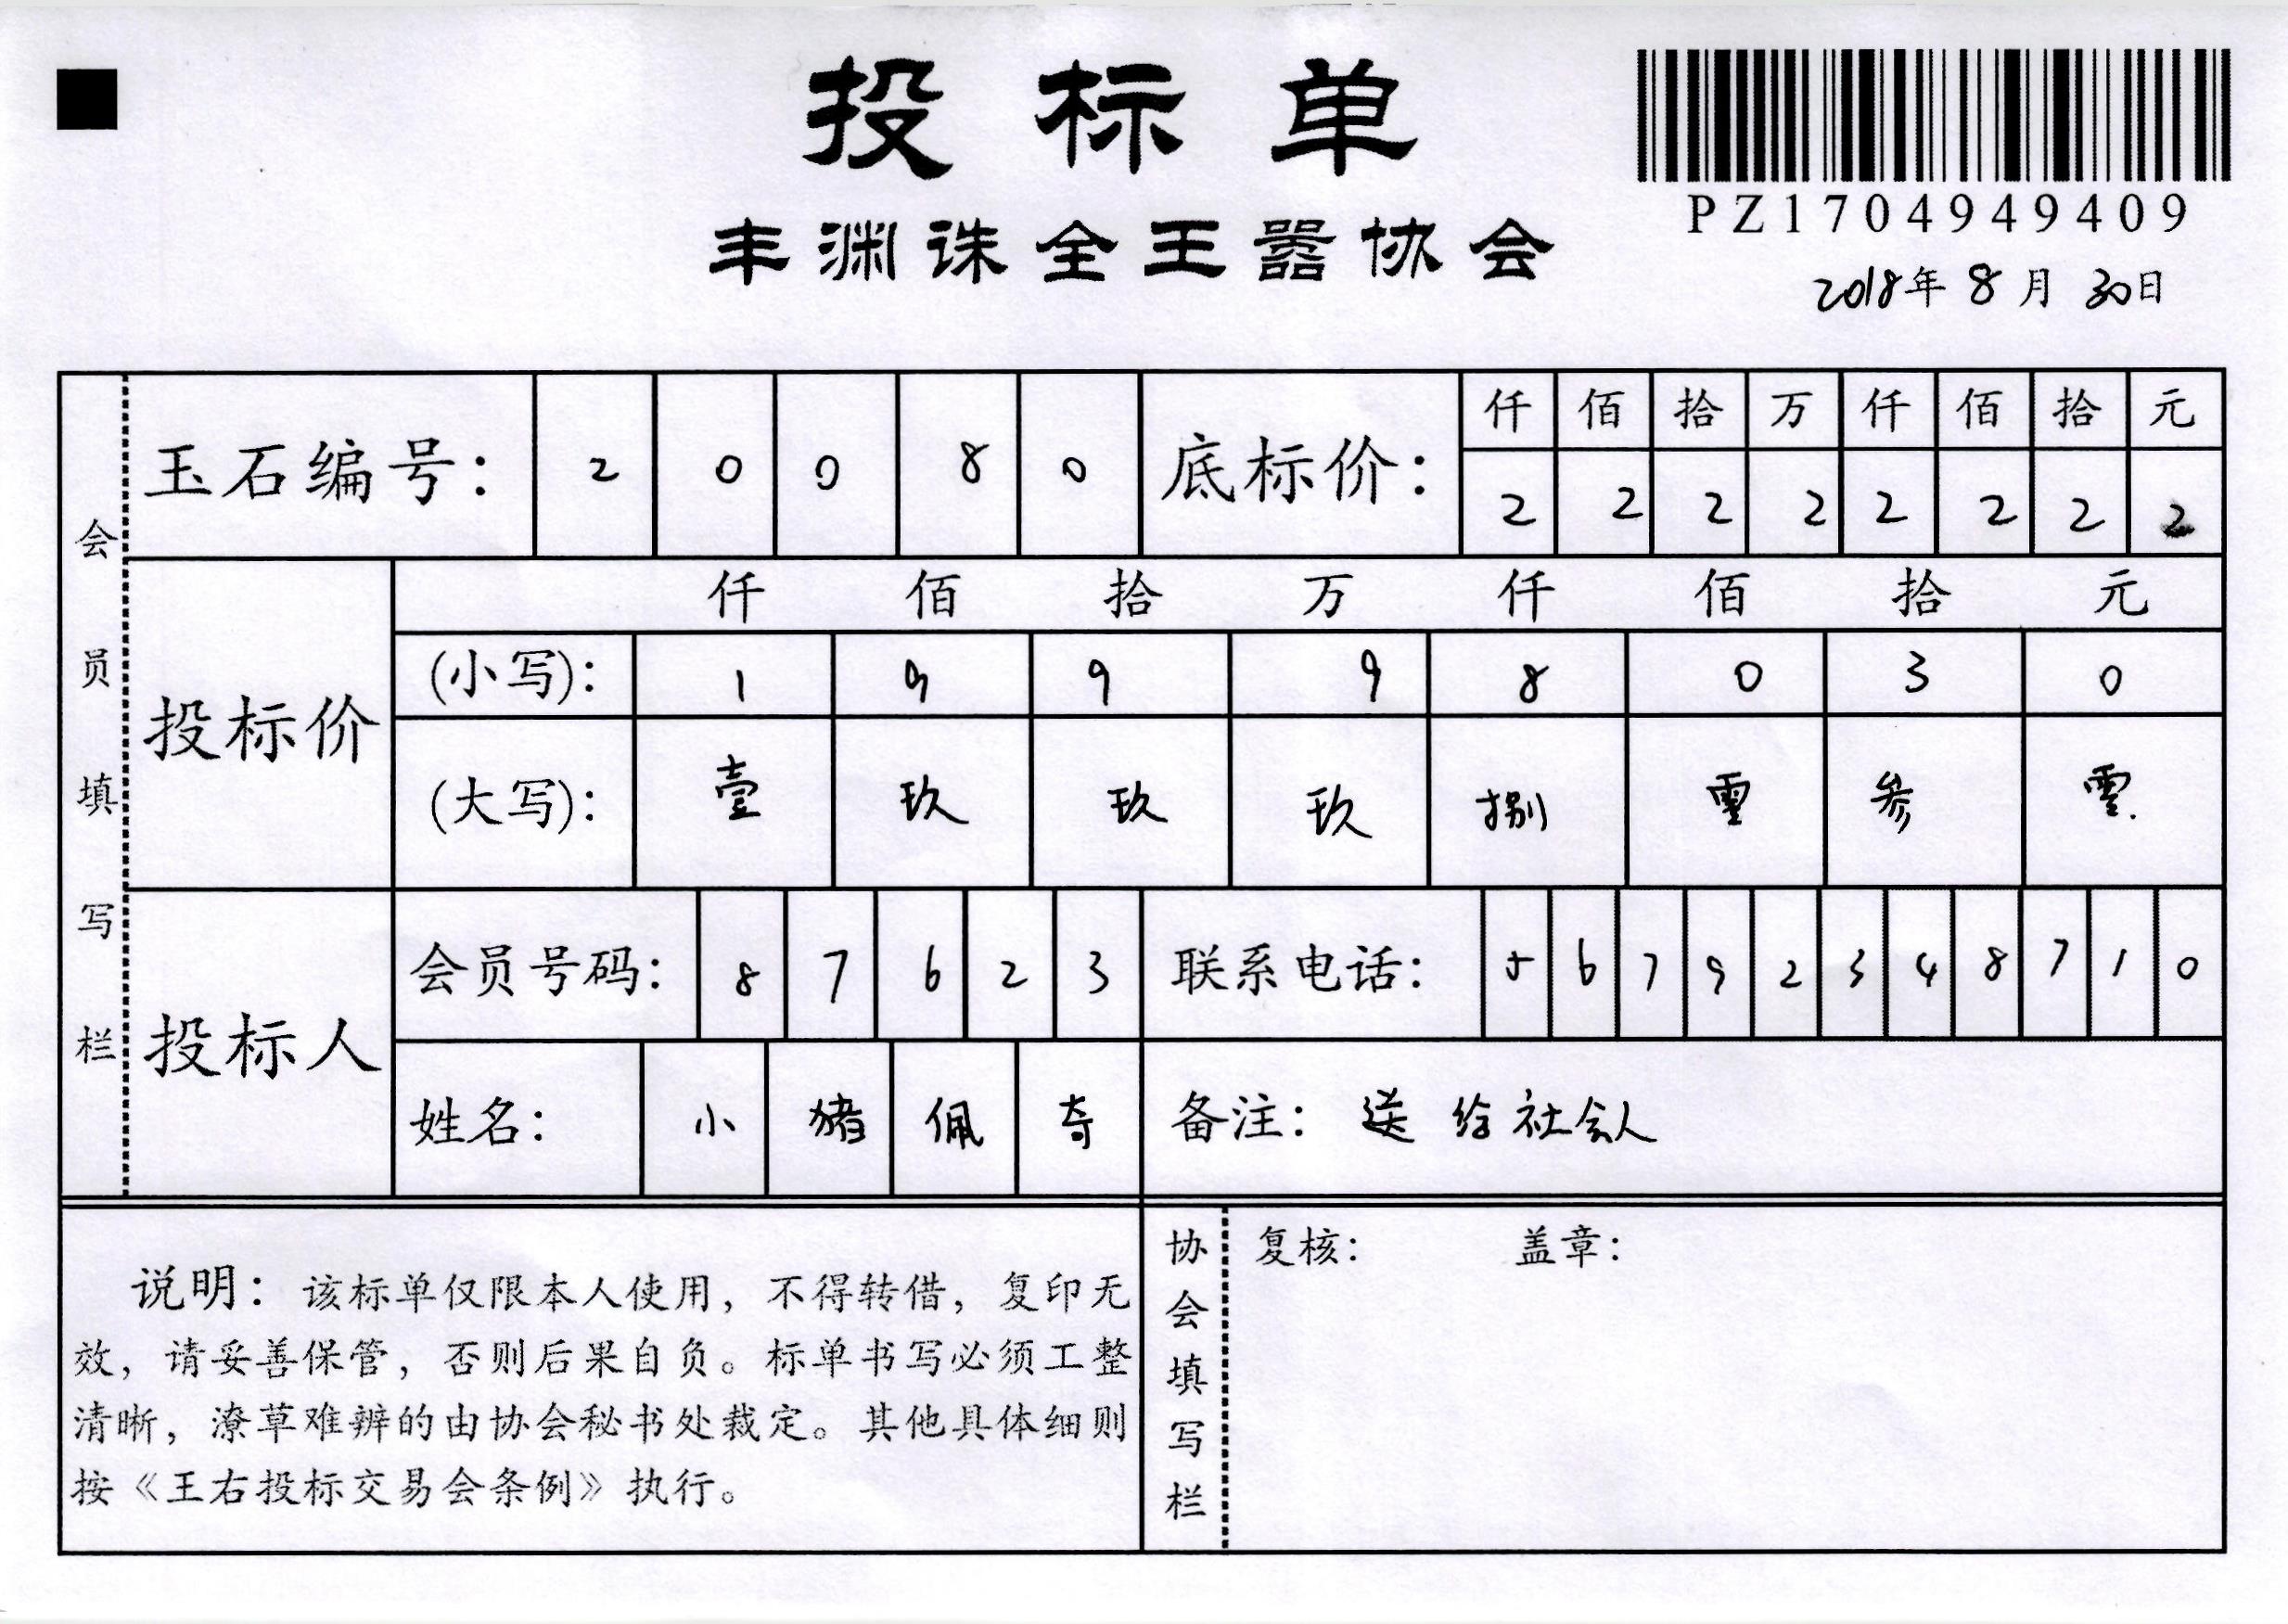 投标单
丰渊诛全王嚣协会
PZ1704949409
2018年 8月 30日
会员填写栏
玉石编号： 2 0 0 8 0
底标价： 仟 佰 拾 万 仟 佰 拾 元
2 2 2 2 2 2 2 2
投标价
仟 佰 拾 万 仟 佰 拾 元
(小写)： 1 9 9 9 8 0 3 0
(大写)： 壹 玖 玖 玖 捌 零 参 零.
投标人
会员号码： 8 7 6 2 3
联系电话： 5 6 7 9 2 3 4 8 7 1 0
姓名： 小 猪 佩 奇
备注： 送给社会人
说明：该标单仅限本人使用，不得转借，复印无
效，请妥善保管，否则后果自负。标单书写必须工整
清晰，潦草难辨的由协会秘书处裁定。其他具体细则
按《王右投标交易会条例》执行。
协会填写栏
复核： 盖章：